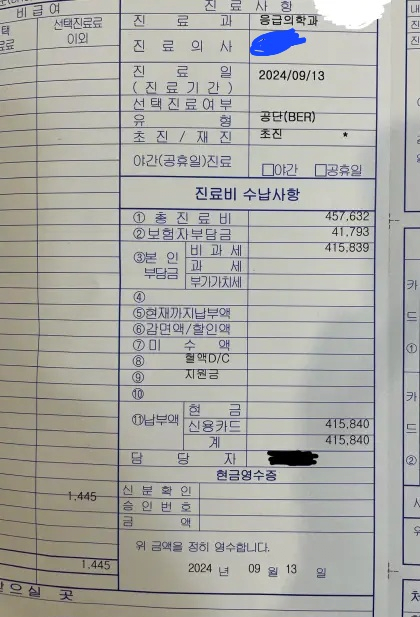 비급여
선택진료료
이외
진료사항
진료과 응급의학과
진료의사
진료일
(진료기간) 2024/09/13
선택진료여부
유형 공단(BER)
초진/재진 초진 *
야간(공휴일)진료 □야간 □공휴일
진료비 수납사항
①총진료비 457,632
②보험자부담금 41,793
③본인부담금 비과세 415,839
과세
부가가치세
④
⑤현재까지납부액
⑥감면액/할인액
⑦미수액
⑧ 혈액D/C
⑨ 지원금
⑩
⑪납부액 현금
신용카드 415,840
계 415,840
담당자
현금영수증
1,445 신분확인
승인번호
금액
위 금액을 정히 영수합니다.
1,445
2024 년 09 월 13 일
받으실 곳